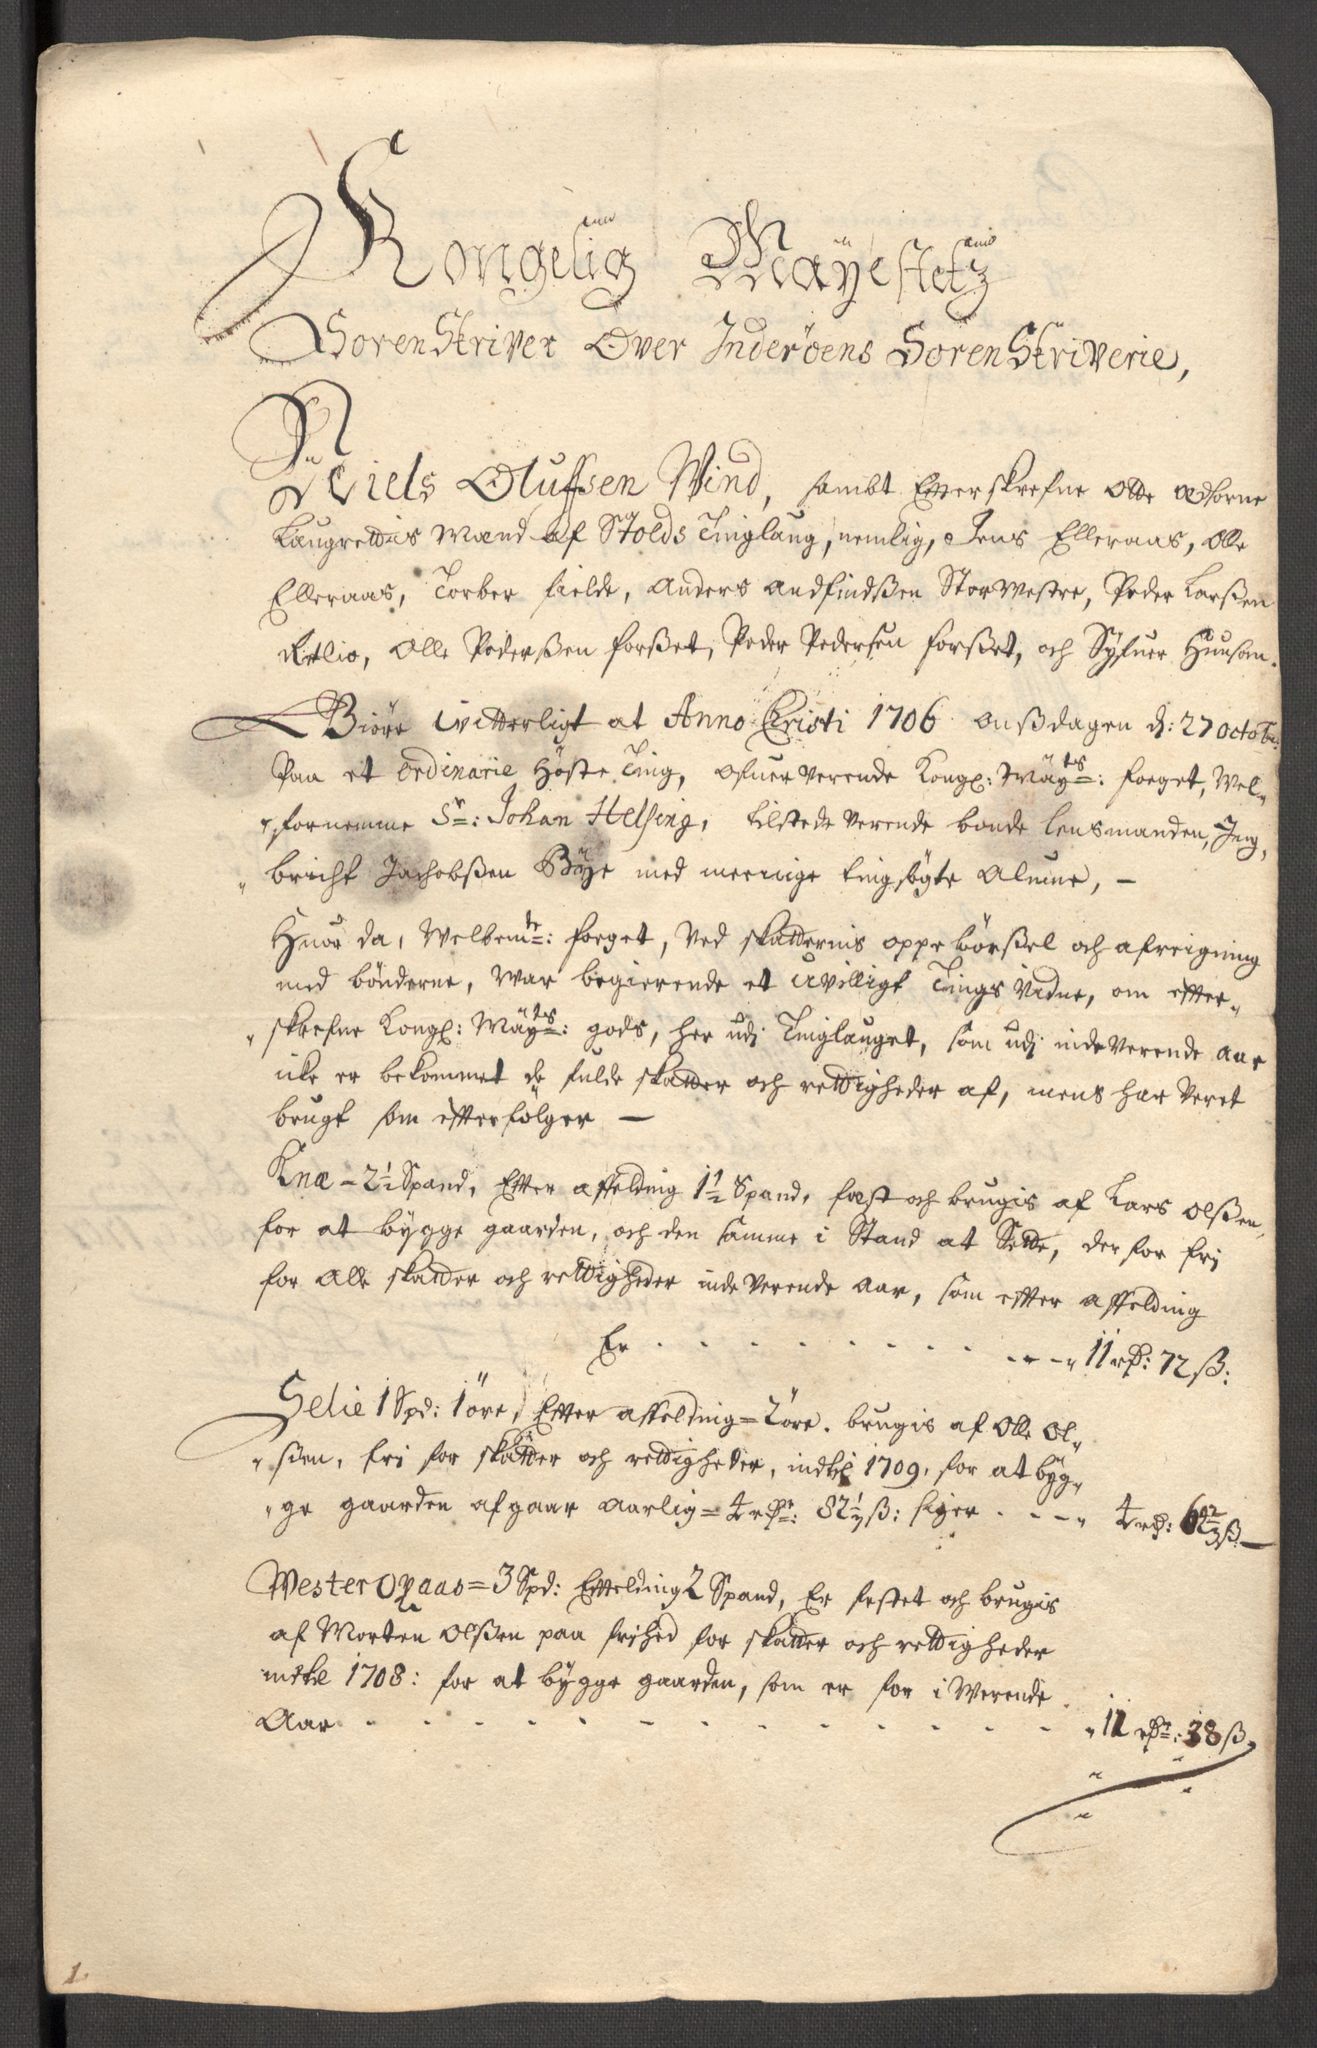 Kongelig Mäyestetz
Soren Skriver Over Inderöens Soren Skriverie,
Niels Oluffsen Wind, sambt Efterskrefne Otte Edsorne
Laugrettis Mænd af Stolds Tinglaug, nemlig, Jens Elleraas, Olle
Elleraas, Torber fielde, Anders Andfindßen Stor Westre, Peder Larßen
Olle Pederßen forßet, Peder Pedersen forßet, och Syfuer Huusom.
Giöre Witterligt at Anno Christi 1706 Onßdagen d: 27 octobr:
Paa et ordinarie Höste Ting, Ofuer Verende Kongl: Mäyts: foeget, Wel-
fornemme Sr: Johan Helsing, tilstede Verende bonde lensmanden, Ing-
bricht Jachobßen Böye med meenige tingsögte Almue, -
Huor da, Welbemte: foeget, Ved skatternis oppebörßel och afreigning
med bönderne, War begierende et uvilligt Tings Vidne, om efter-
skrefne Kongl: Mäyts: gods, her udi Tinglauget, som udi inde Verende aar
icke er bekommet de fulde skatter och rettigheder af, mens har Veret
brugt som efterfölger -
Knæ - 2½ Spand, Efter affelding 1½ Spand, fæst och brugis af Lars Olßen,
for at bygge gaarden, och den samme i Stand at Sette, der for fri
for Alle skatter och rettigheder inde Verende aar, som efter affelding
Er - - - - - - - - - 11 rd: 72 ß:
Selie 1 Spd: 1 öre, Efter affelding = 2 öre. brugis af Olle Ol-
ßen, fri for skatter och rettigheder, indtil 1709, for at byg-
ge gaarden afgaar Aarlig = 4 rdr: siger - - - 4 rd:
Wester = 3 Spd: Effelding 2 Spand, Er festet och brugis
af Morten Olßen paa frihed for skatter och rettigheder
indtil 1708: for at bygge gaarden, som er for i Werende
Aar - - - - - - - - - - - - 11 rdr: 38 ß.
1.